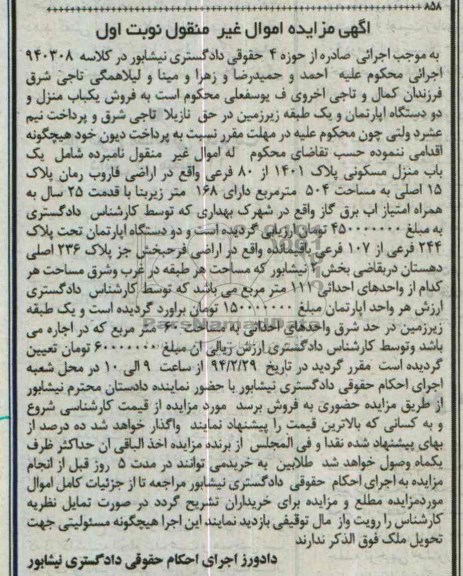 ۸۵۸
آگهی مزایده اموال غیر منقول نوبت اول
به موجب اجرائی صادره از حوزه ۴ حقوقی دادگستری نیشابور در کلاسه ۹۴۰۳۰۸
اجرائی محکوم علیه احمد و حمیدرضا و زهرا و مینا و لیلاهمگی تاجی شرق
فرزندان کمال و تاجی اخروی ف یوسفعلی محکوم است به فروش یکباب منزل و
دو دستگاه اپارتمان و یک طبقه زیرزمین در حق نازیلا تاجی شرق و پرداخت نیم
عشرد ولتی چون محکوم علیه در مهلت مقرر نسبت به پرداخت دیون خود هیچگونه
اقدامی ننموده حسب تقاضای محکوم له اموال غیر منقول نامبرده شامل یک
باب منزل مسکونی پلاک ۱۴۰۱ از ۸۰ فرعی واقع در اراضی قاروب رمان پلاک
۱۵ اصلی به مساحت ۵۰۴ مترمربع دارای ۱۶۸ متر زیربنا با قدمت ۲۵ سال به
همراه امتیاز اب برق گاز واقع در شهرک بهداری که توسط کارشناس دادگستری
به مبلغ ۴۵۰۰۰۰۰۰۰ تومان ارزیابی گردیده است و دو دستگاه اپارتمان تحت پلاک
۲۴۴ فرعی از ۱۰۷ فرعی باقیمانده واقع در اراضی فرحبخش جز پلاک ۲۳۶ اصلی
دهستان دربقاضی بخش ۲ نیشابور که مساحت هر طبقه در غرب وشرق مساحت هر
کدام از واحدهای احداثی ۱۱۱ متر مربع می باشد که توسط کارشناس دادگستری
ارزش هر واحد اپارتمان مبلغ ۱۵۰۰۰۰۰۰۰ تومان براورد گردیده است و یک طبقه
زیرزمین در حد شرق واحدهای احداثی به مساحت ۶۰ متر مربع که در اجاره می
باشد وتوسط کارشناس دادگستری ارزش ریالی ان مبلغ ۶۰۰۰۰۰۰۰ تومان تعیین
گردیده است مقرر گردید در تاریخ ۹۴/۲/۲۹ از ساعت ۹ الی ۱۰ در محل شعبه
اجرای احکام حقوقی دادگستری نیشابور با حضور نماینده دادستان محترم نیشابور
از طریق مزایده حضوری به فروش برسد مورد مزایده از قیمت کارشناسی شروع
و به کسانی که بالاترین قیمت را پیشنهاد نمایند واگذار خواهد شد ده درصد از
بهای پیشنهاد شده نقدا و فی المجلس از برنده مزایده اخذ الباقی ان حداکثر ظرف
یکماه وصول خواهد شد طلابین به خریدمی توانند در مدت ۵ روز قبل از انجام
مزایده به اجرای احکام حقوقی دادگستری نیشابور مراجعه تا از جزئیات کامل اموال
موردمزایده مطلع و مزایده برای خریداران تشریح گردد در صورت تمایل نظریه
کارشناس را رویت واز مال توقیفی بازدید نمایند این اجرا هیچگونه مسئولیتی جهت
تحویل ملک فوق الذکر ندارند
دادورز اجرای احکام حقوقی دادگستری نیشابور